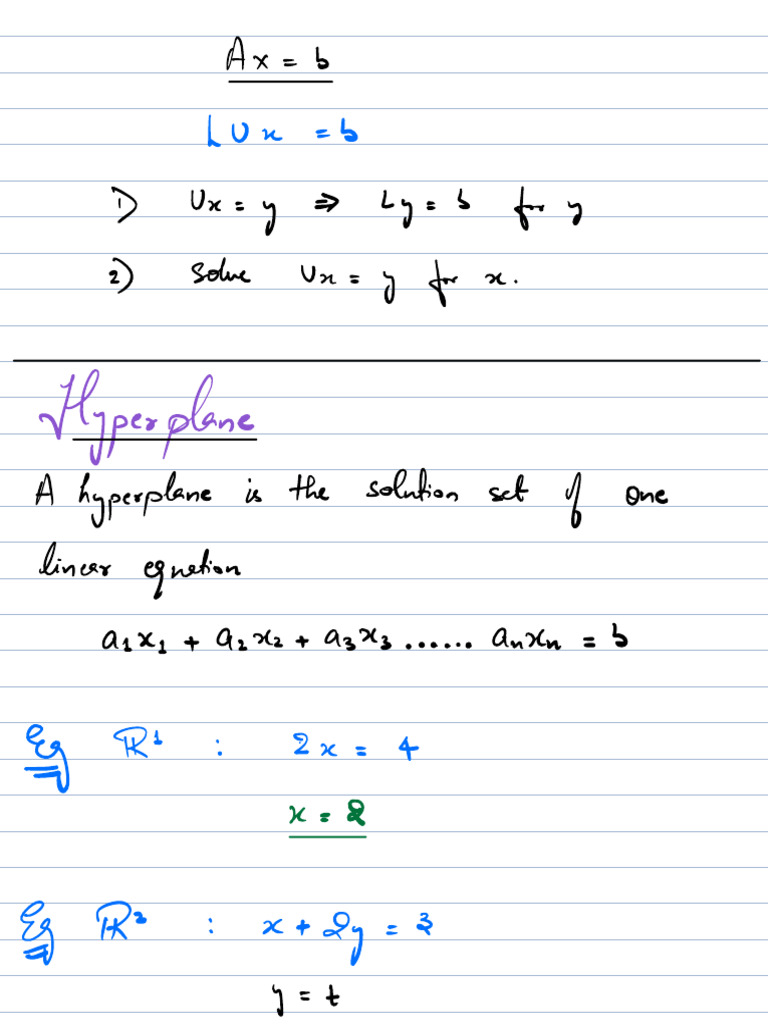 Ax = b
LUx = b
1) Ux = y ⇒ Ly = b for y
2) Solve Ux = y for x.
Hyperplane
A hyperplane is the solution set of one
linear equation
a₁x₁ + a₂x₂ + a₃x₃ ...... aₙxₙ = b
Eg ℝ¹ : 2x = 4
x = 2
Eg ℝ² : x + 2y = 3
y = t